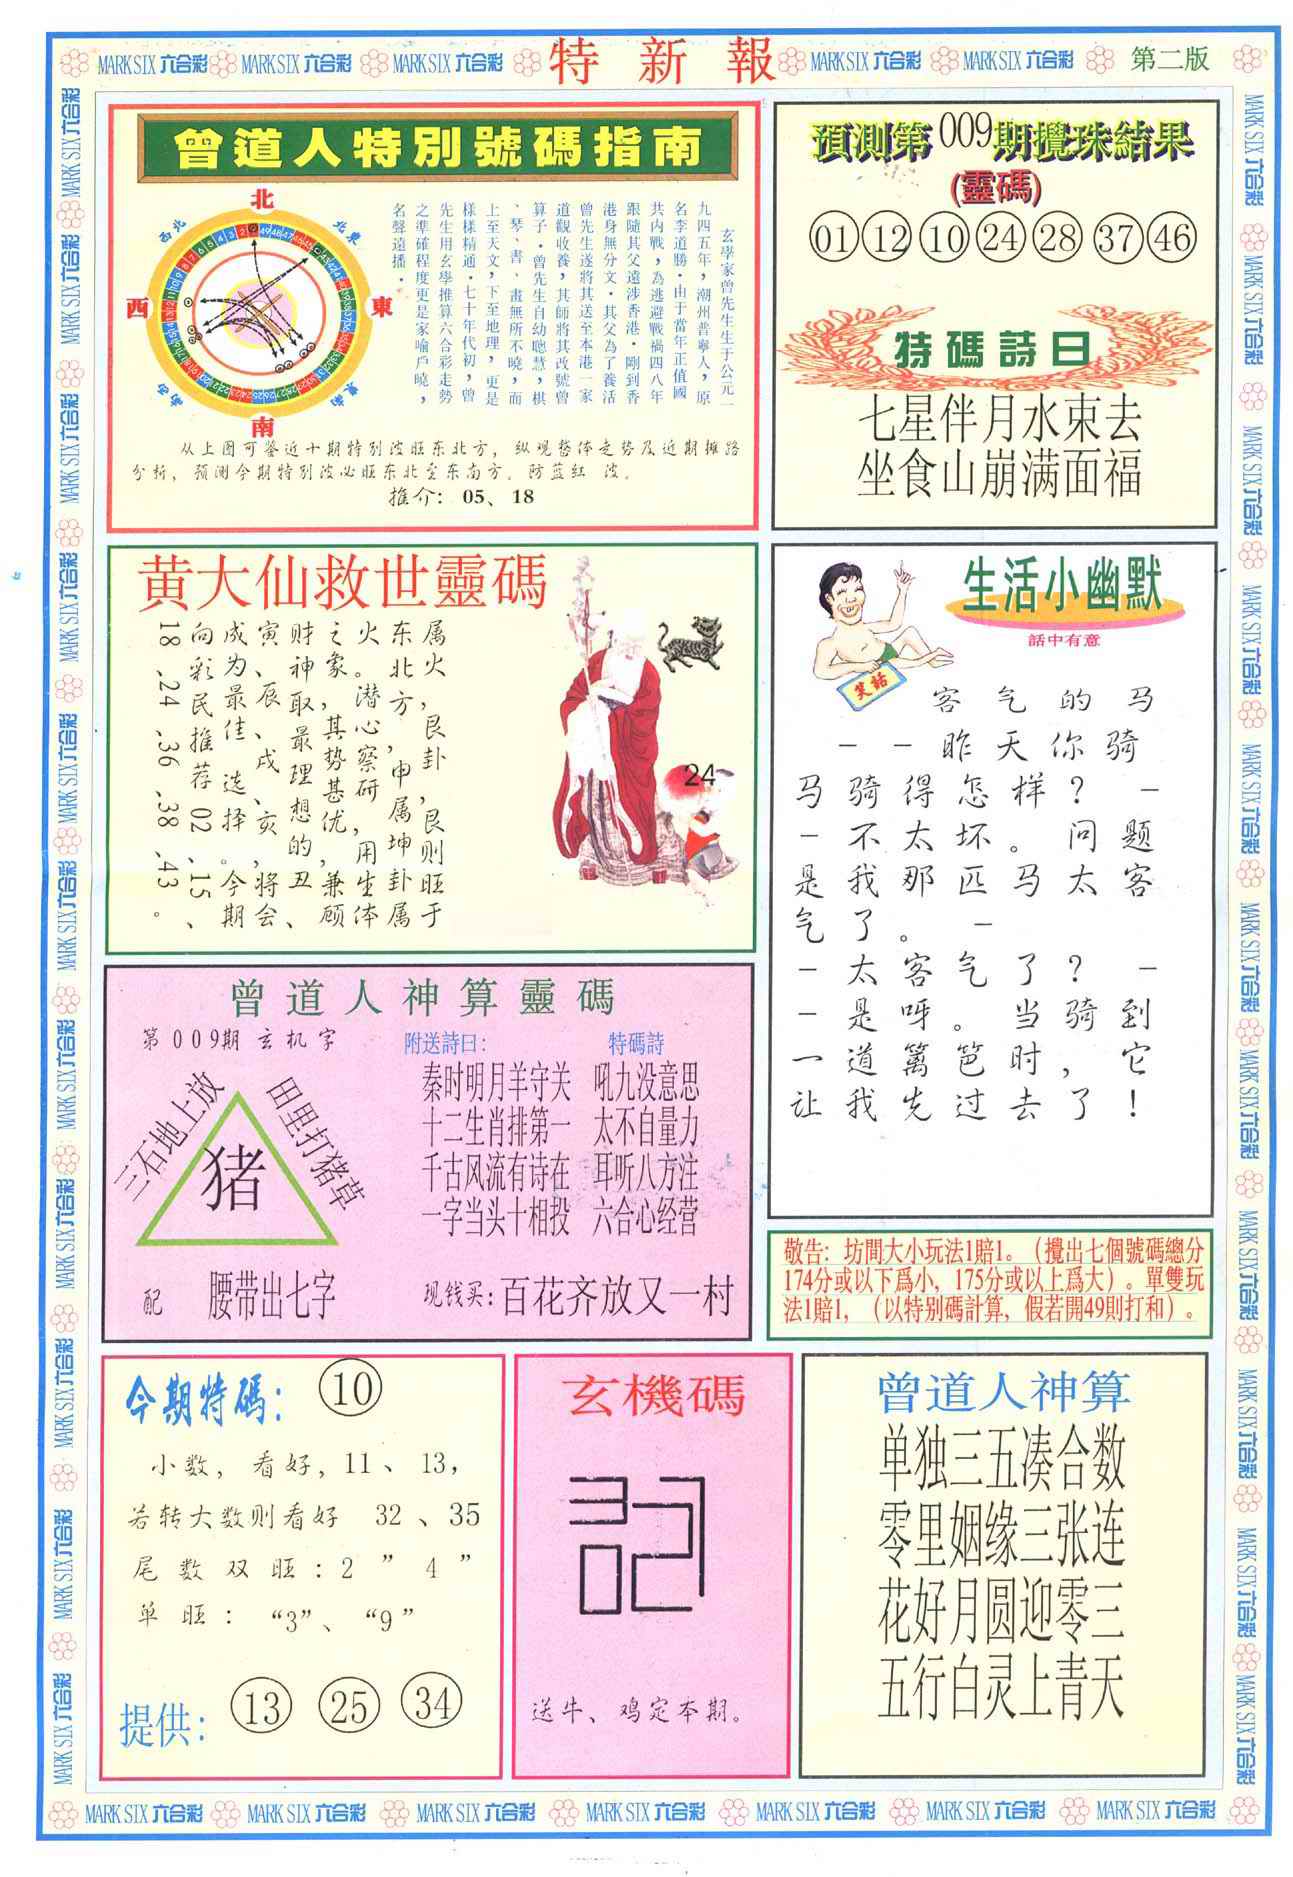 MARK SIX 六合彩 MARK SIX 六合彩 MARK SIX 六合彩 特新報 MARK SIX 六合彩 MARK SIX 六合彩 第二版
曾道人特別號碼指南
北
西北
東北
西
東
西南
東南
南
玄學家曾先生生于公元一
九四五年，潮州普寧人，原
名李道勝·由于當年正值國
共内戰，為逃避戰禍四八年
跟隨其父遠涉香港·剛到香
港身無分文·其父為了養活
曾先生遂將其送至本港一家
道觀收養，其師將其改號曾
算子·曾先生自幼聰慧，棋
、琴、書、畫無所不曉，而
上至天文，下至地理，更是
樣樣精通·七十年代初，曾
先生用玄學推算六合彩走勢
之準確程度更是家喻戶曉，
名聲遠播·
从上图可鉴近十期特别波旺东北方，纵观整体走势及近期摊路
分析，预测今期特别波必旺东北至东南方。防蓝红 波。
推介：05、18
預測第009期攪珠結果
(靈碼)
01 12 10 24 28 37 46
特碼詩曰
七星伴月水東去
坐食山崩满面福
黄大仙救世靈碼
属火，艮卦，艮则旺于
东北方，申属坤卦属
火。潜心察研，用生体
之象，其势甚优，兼顾
财神取最理想的丑、
寅、辰、戌、亥，将会
成为最佳选择。今期
向彩民推荐02、15、
18、24、36、38、43。
24
生活小幽默
話中有意
笑話
客气的马
－－昨天你骑
马骑得怎样？－
－不太坏。问题
是我那匹马太客
气了。－
－太客气了？－
－是呀。当骑到
一道篱笆时，它
让我先过去了！
曾道人神算靈碼
第009期 玄机字
三石地上放
田里打猪草
猪
配 腰带出七字
附送詩曰:
秦时明月羊守关
十二生肖排第一
千古风流有诗在
一字当头十相投
特碼詩
吼九没意思
太不自量力
耳听八方注
六合心经营
现钱买: 百花齐放又一村
敬告：坊間大小玩法1賠1。（攪出七個號碼總分
174分或以下爲小，175分或以上爲大）。單雙玩
法1賠1，（以特别碼計算，假若開49則打和）。
今期特碼: 10
小数，看好，11、13，
若转大数则看好 32、35
尾数双旺：2 ” 4 ”
单旺：“3”、“9”
提供: 13 25 34
玄機碼
送牛、鸡定本期。
曾道人神算
单独三五凑合数
零里姻缘三张连
花好月圆迎零三
五行白灵上青天
MARK SIX 六合彩 MARK SIX 六合彩 MARK SIX 六合彩 MARK SIX 六合彩 MARK SIX 六合彩 MARK SIX 六合彩 MARK SIX 六合彩